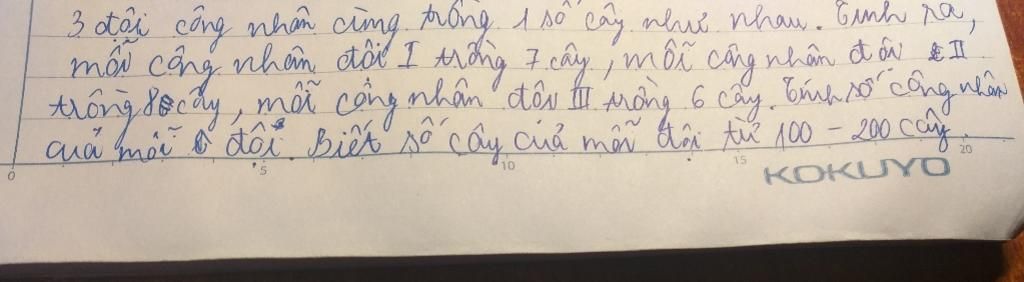 3 đội công nhân cùng trồng 1 số cây như nhau. Tính ra,
mỗi công nhân đội I trồng 7 cây, mỗi công nhân đội II
trồng 8 cây, mỗi công nhân đội III trồng 6 cây. Tính số công nhân
của mỗi đội. Biết số cây của mỗi đội từ 100 - 200 cây.
0 5 10 15 20
KOKUYO